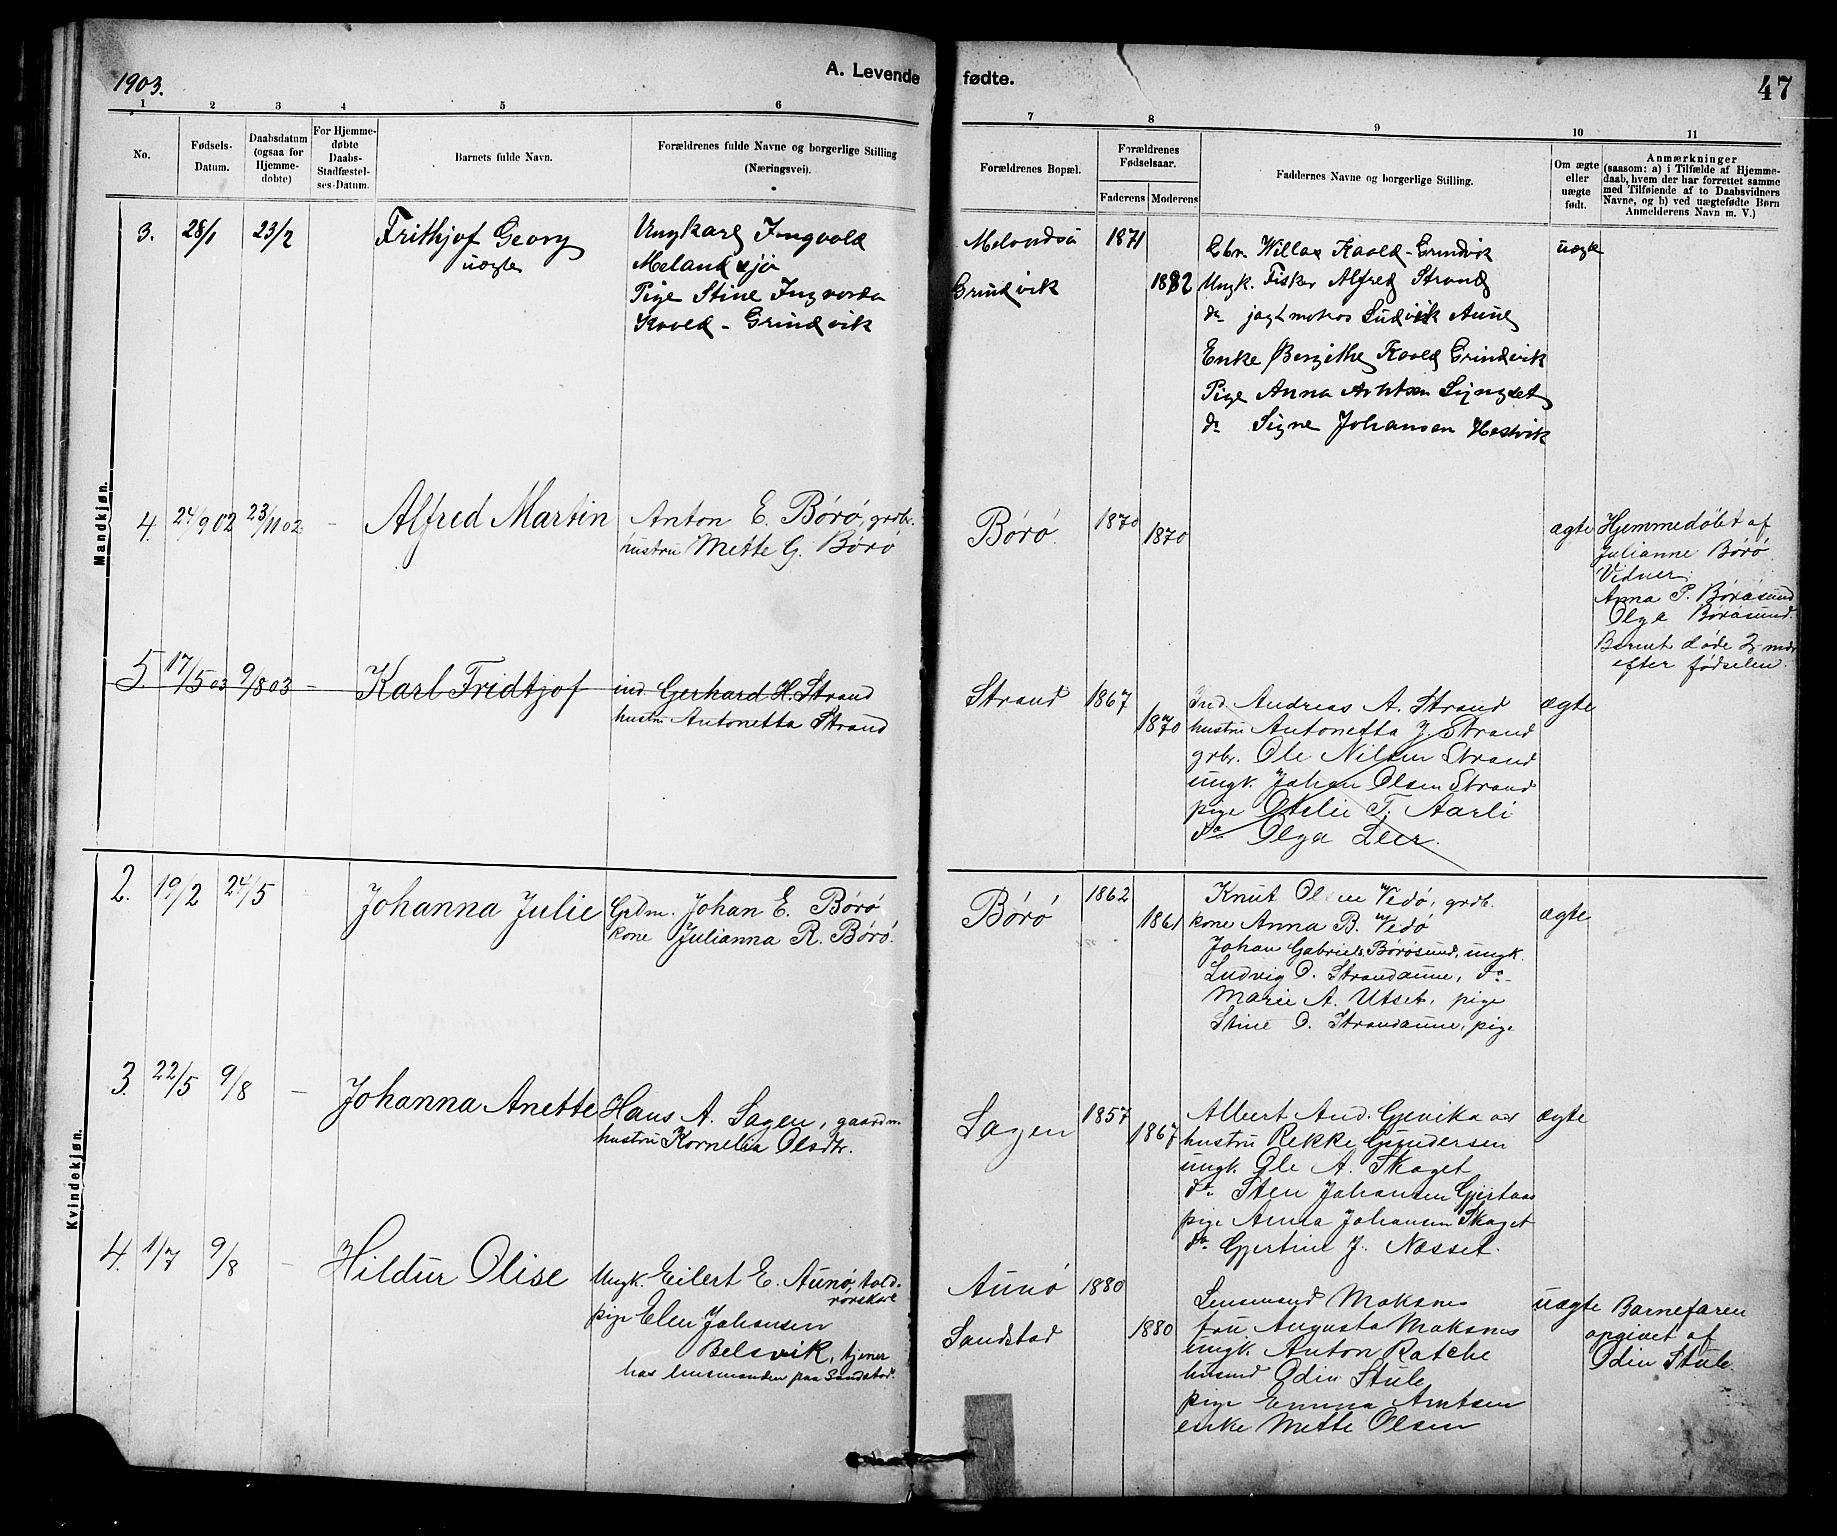 1903.
A. Levende fødte.
47
1 2 3 4 5 6 7 8 9 10 11
No.
Fødsels-Datum.
Daabsdatum (ogsaa for Hjemmedøbte)
For Hjemmedøbte Daabs-Stadfæstelses-Datum.
Barnets fulde Navn.
Forældrenes fulde Navne og borgerlige Stilling (Næringsvei).
Forældrenes Bopæl.
Forældrenes Fødselsaar.
Faderens Moderens
Faddernes Navne og borgerlige Stilling.
Om ægte eller uægte født.
Anmærkninger
(saasom: a) i Tilfælde af Hjemmedaab, hvem der har forrettet samme med Tilføiende af to Daabsvidners Navne, og b) ved uægtefødte Børn Anmelderens Navn m. V.)
Mandkjøn.
3. 28/1 23/2 Frithjof Georg
uægte
Ungkarl Ingvold
Melandsjø
Pige Stine Ingvorda
Kvold - Grindvik
Melandsø 1871
Grindvik 1882
Willas Kvold - Grindvik
Ungk. Fisker Alfred Strand
do Ludvik Aune
Enke Bergithe Kvold Grindvik
Pige Anna Arntsen Lyngset
do Signe Johansen Hestvik
uægte
4. 24/9 02 23/11 02 - Alfred Martin
Anton E. Børø, grdbr.
hustru Mette G. Børø
Børø 1870 1870
ægte
Hjemmedøbt af
Julianne Børø
Vidner:
Anna P. Børøsund
Olga Børøsund.
Barnet døde 2 mdr
efter fødselen.
5. 17/5 03 9/8 03 - Karl Fridtjof
ind. Gerhard H. Strand
hustru Antonetta Strand
Strand 1867 1870
Ind. Andreas A. Strand
hustru Antonetta J. Strand
grbr. Ole Nilsen Strand
ungk. Johan Olsen Strand
pige Otelie T. Aarli
do Olga Leer.
ægte
Kvindekjøn.
2. 19/2 24/5 - Johanna Julie
Grdm. Johan E. Børø
kone Julianna R. Børø.
Børø 1862 1861
Knut Olsen Vedø, grdb.
kone Anna B. Vedø
Johan Gabriels. Børøsund, ungk.
Ludvig O. Strandaune, do
Marie A. Utset, pige
Stine O. Strandaune, pige
ægte
3. 22/5 9/8 - Johanna Anette
Hans A. Sagen, gaardm.
hustru Kornelia Olsdtr.
Sagen 1857 1867
Albert And. Gjevika
hustru Rekke Gundersen
ungk. Ole A. Skaget
do Sten Johansen Gjertaas
pige Anna Johansen Skaget
do Gjertine J. Nesset.
ægte
4. 1/7 9/8 - Hildur Olise
Ungk. Eilert E. Aunø,
pige Elen Johansen
Belsvik, tjener
hos lensmanden paa Sandstad.
Aunø 1880
Sandstad 1880
Lensmand Moksnes
fru Augusta Moksnes
ungk. Anton Ratche
husmd Odin Stule
pige Emma Arntsen
enke Mette Olsen
uægte
Barnefaren
opgivet af
Odin Stule